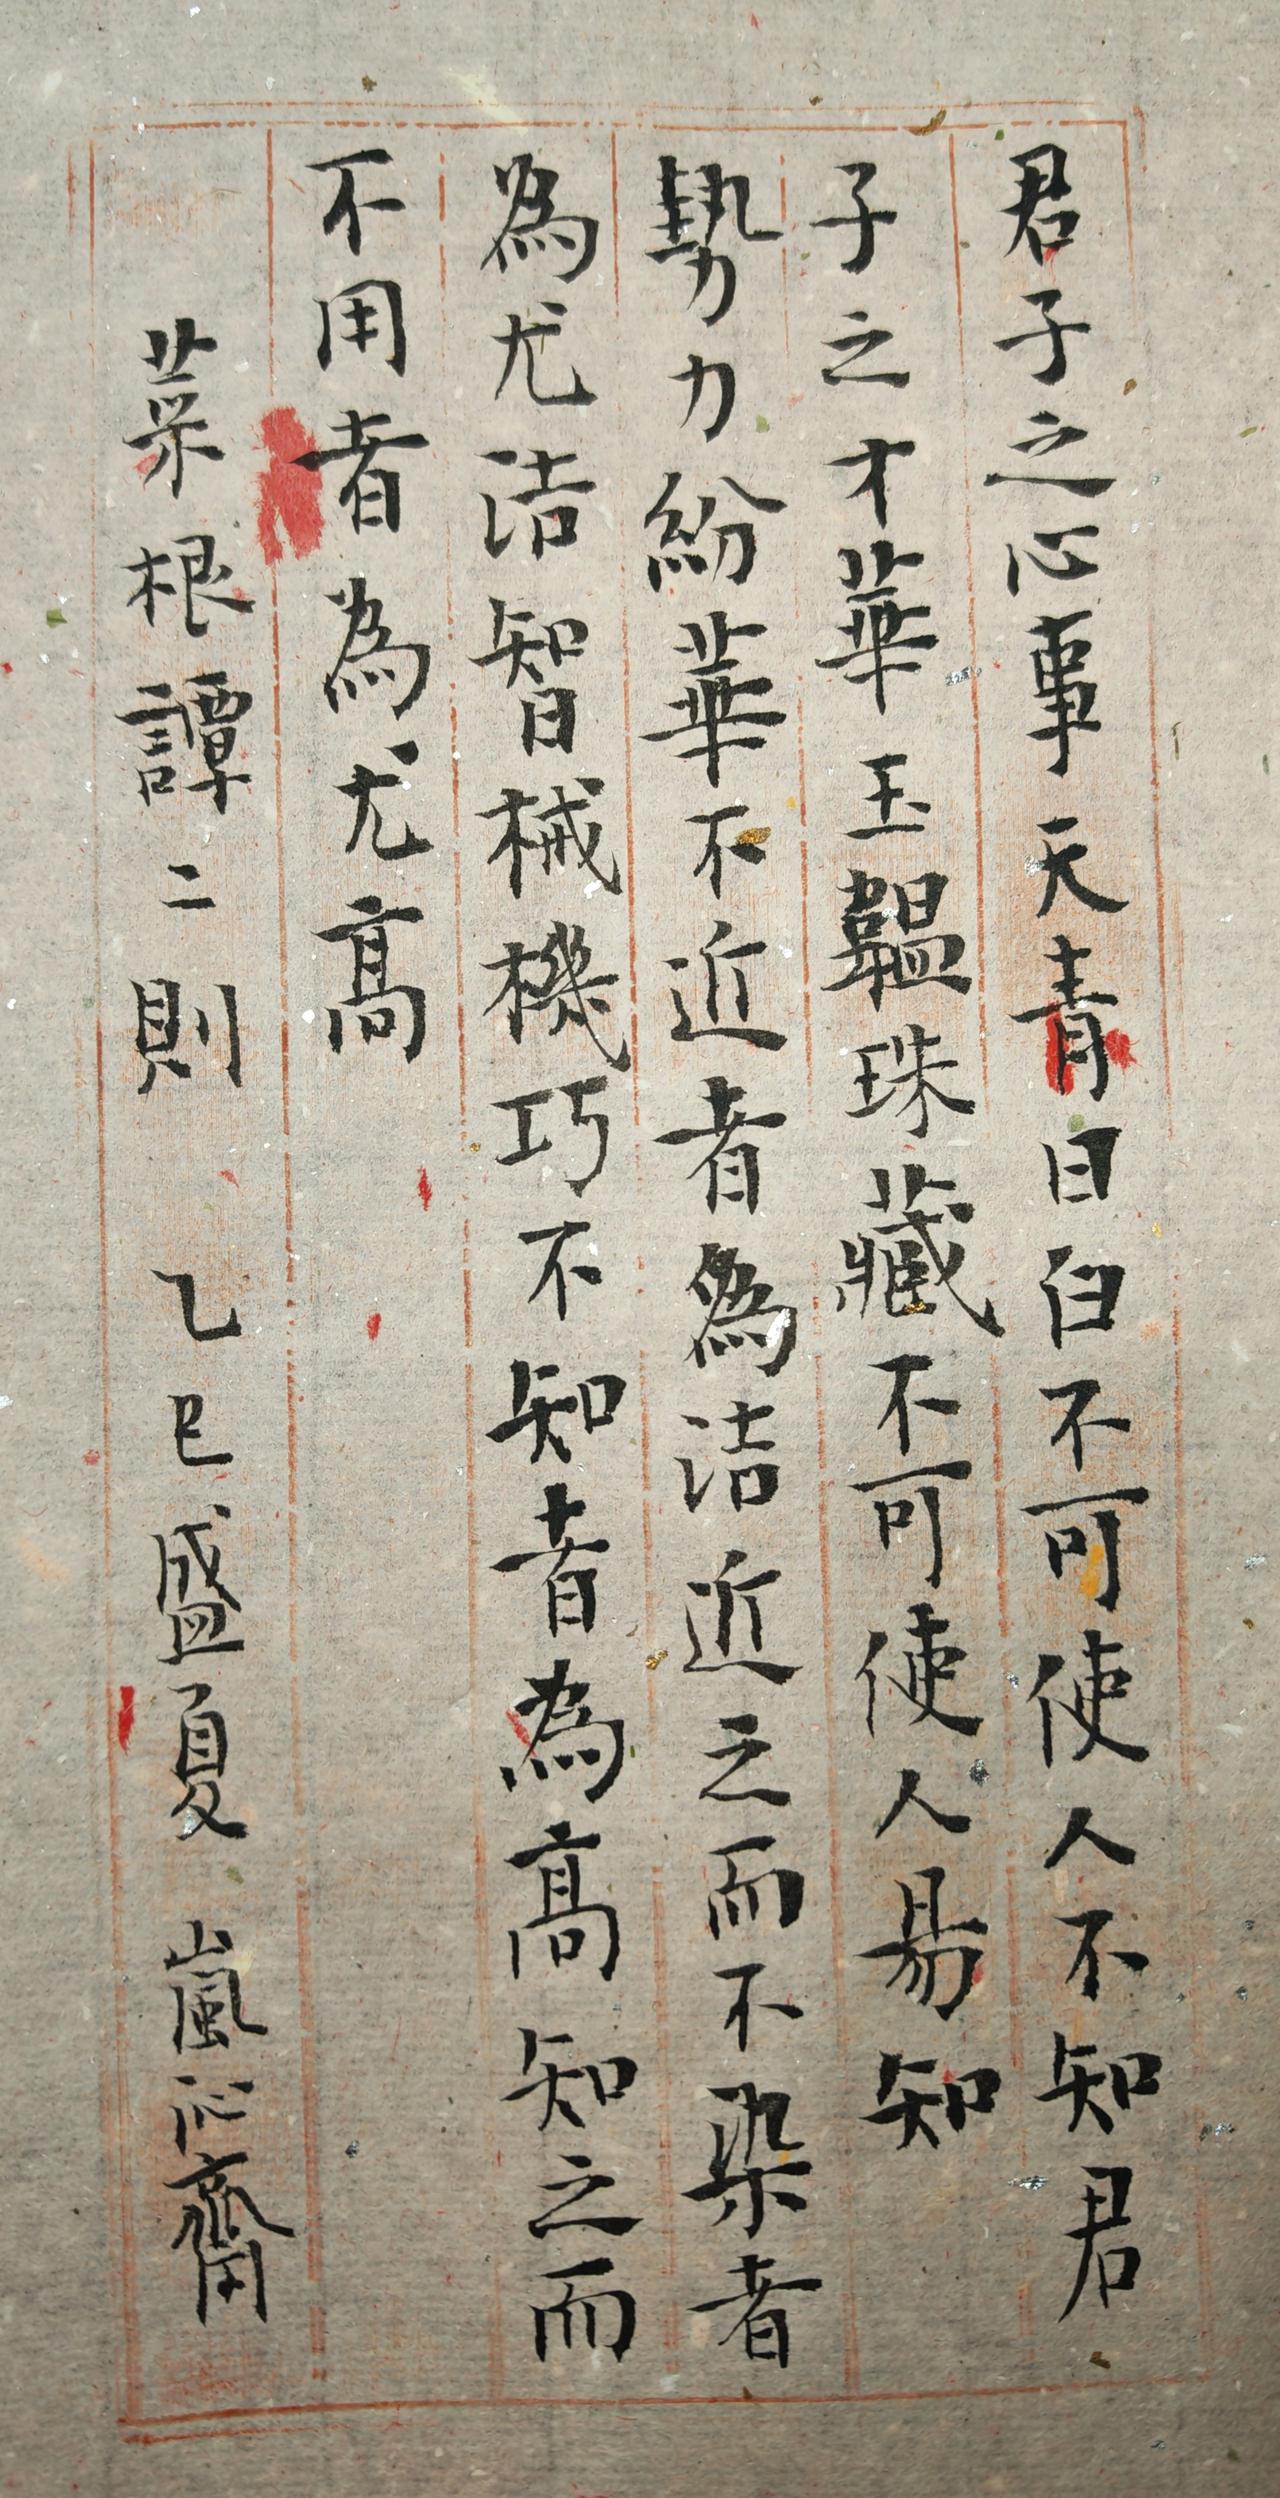 君子之心事天青日白不可使人不知君
子之才華玉韞珠藏不可使人易知
勢力紛華不近者為洁近之而不染者
為尤洁智械機巧不知者為高知之而
不用者為尤高
菜根譚二則 乙巳盛夏 嵐心齋